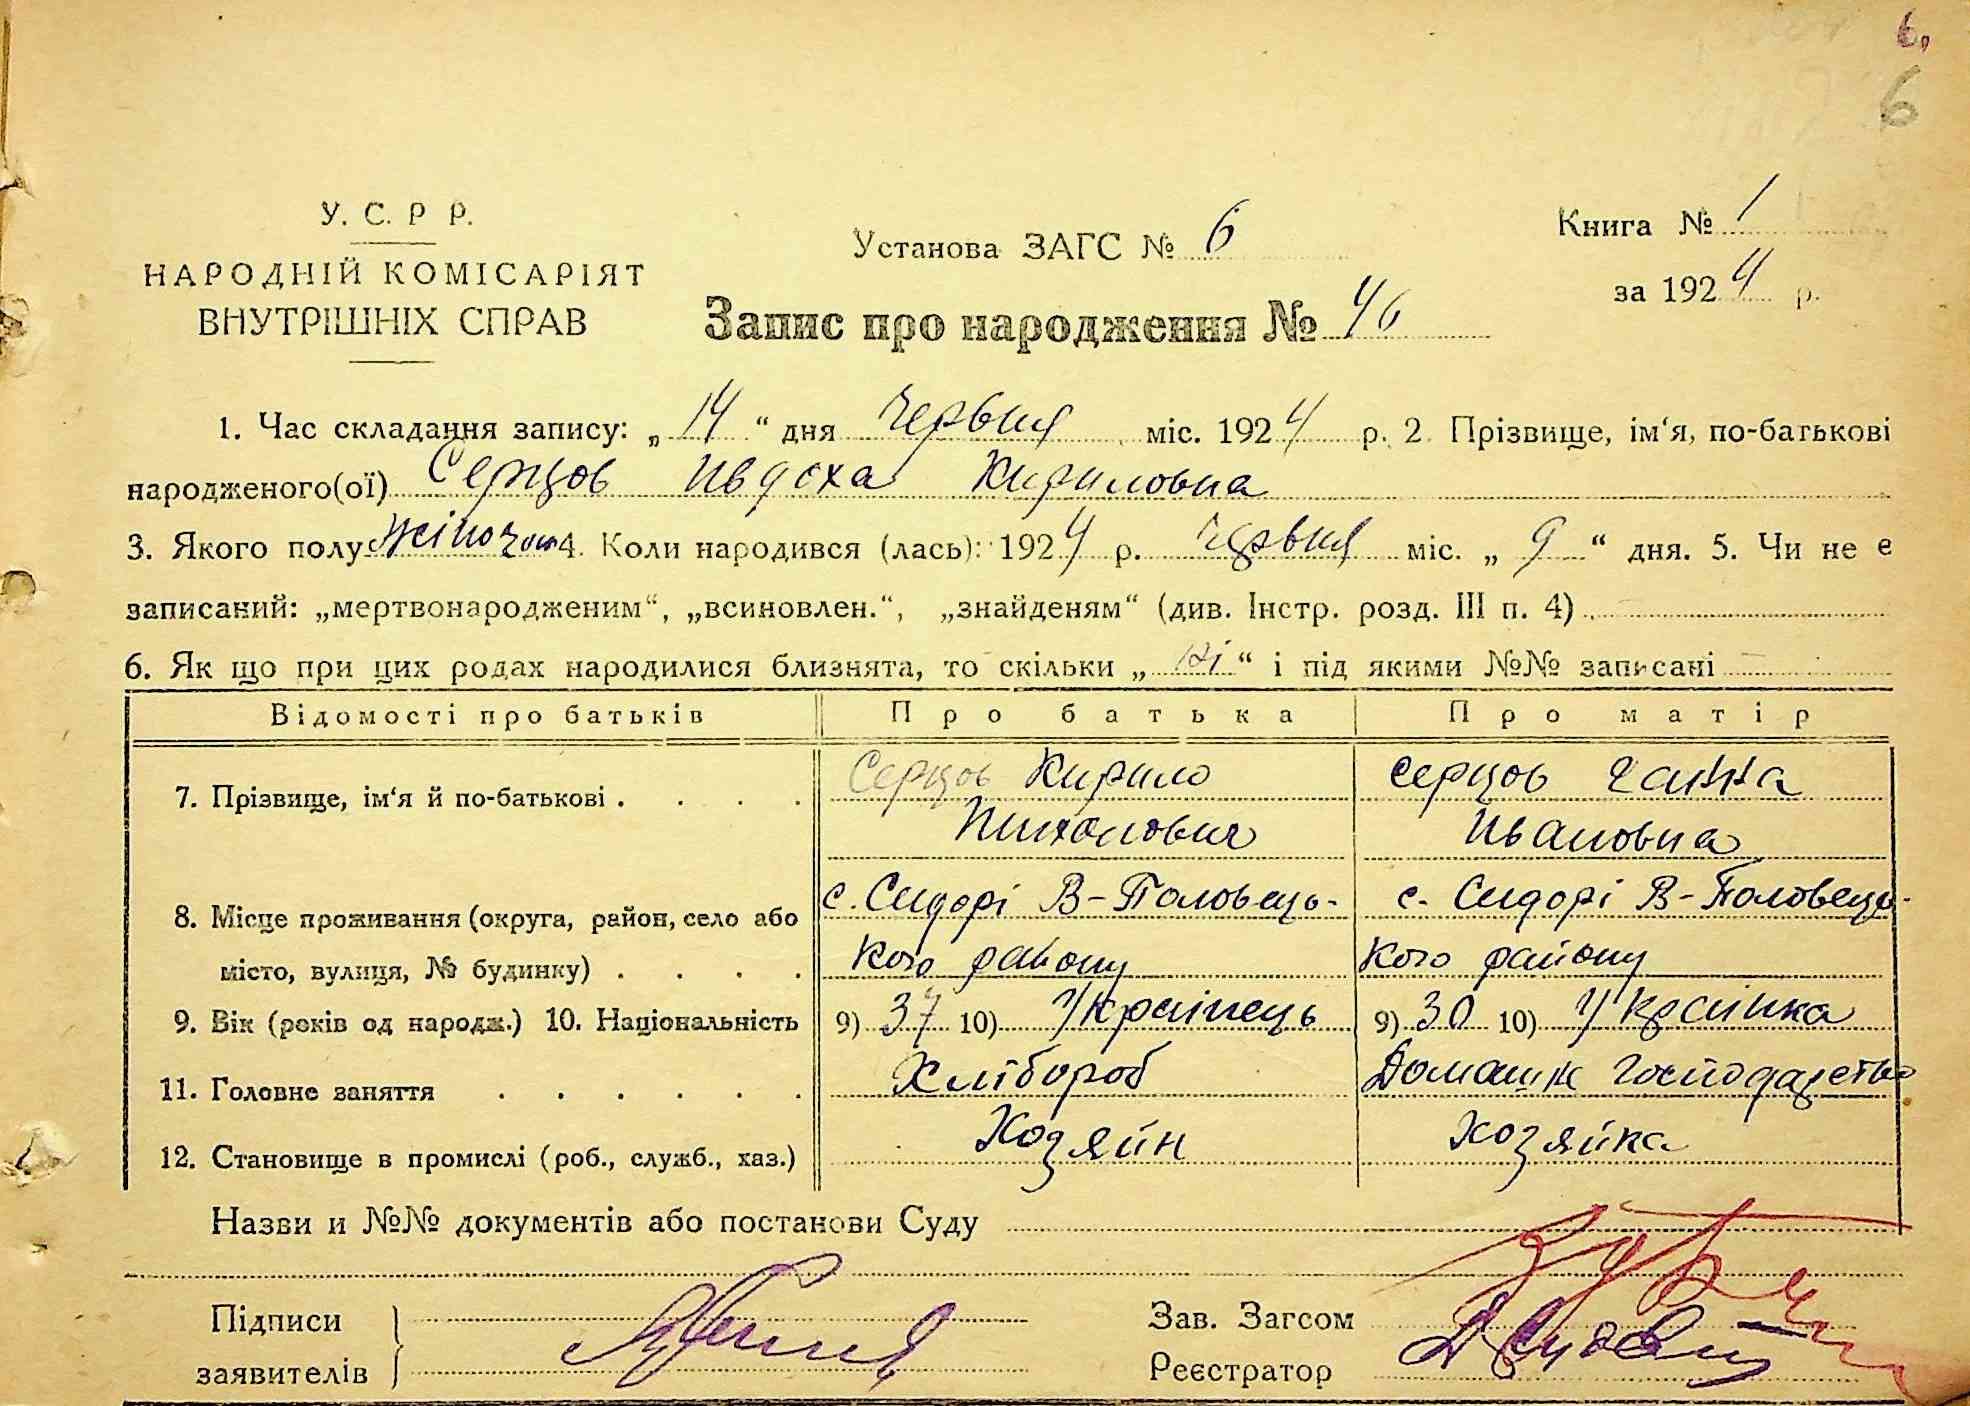 6.
6
У. С. Р Р.
НАРОДНІЙ КОМІСАРІЯТ
ВНУТРІШНІХ СПРАВ
Установа ЗАГС № 6
Книга № 1
за 1924 р.
Запис про народження № 46
1. Час складання запису: „14“ дня червня міс. 1924 р. 2. Прізвище, ім‘я, по-батькові
народженого(ої) Серцов Ивдоха Кириловна
3. Якого полу жіночої 4. Коли народився (лась): 1924 р. червня міс. „9“ дня. 5. Чи не є
записаний: „мертвонародженим“, „всиновлен.“, „знайденям“ (див. Інстр. розд. III п. 4)
6. Як що при цих родах народилися близнята, то скільки „ні“ і під якими №№ записані
Відомості про батьків Про батька Про матір
7. Прізвище, ім‘я й по-батькові Серцов Кирило Серцов Ганна
Ивановна
8. Місце проживання (округа, район, село або с. Сидорі В-Половець- с. Сидорі В-Половець-
місто, вулиця, № будинку) кого району кого району
9. Вік (років од народж.) 10. Національність 9) 37 10) Українець 9) 30 10) Українка
11. Головне заняття Хлібороб Домашнє господарство
12. Становище в промислі (роб., служб., хаз.) Хозяйн Хозяйка
Назви и №№ документів або постанови Суду
Підписи
заявителів
Зав. Загсом
Реєстратор